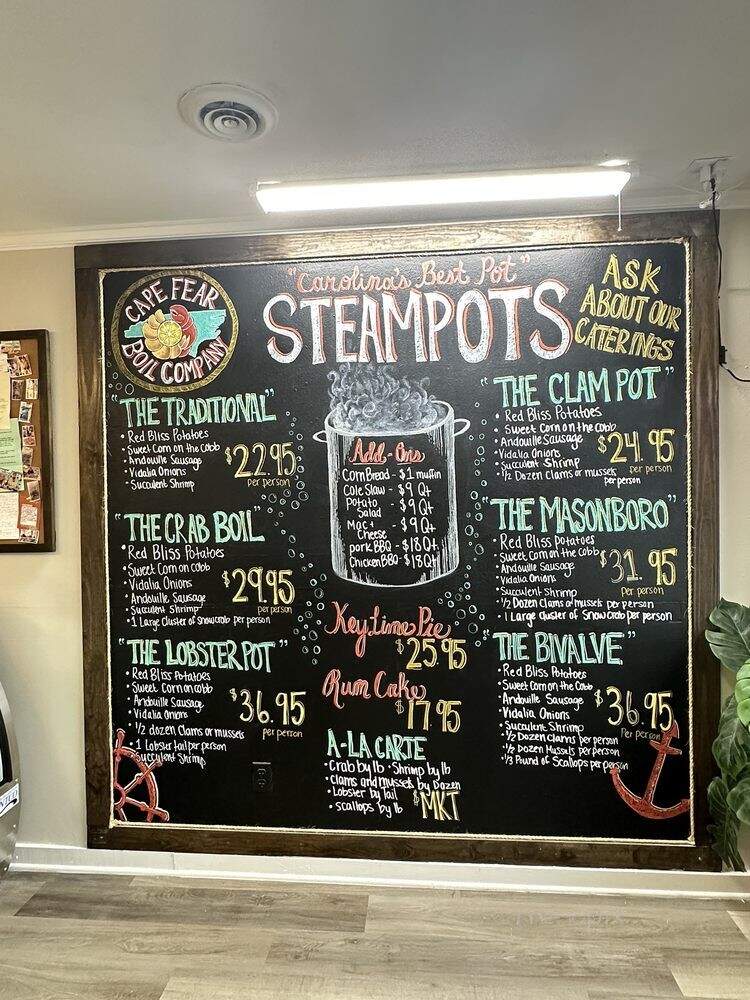 CAPE FEAR
BOIL COMPANY
"Carolina's Best Pot"
STEAMPOTS
ASK
ABOUT OUR
CATERINGS
"THE TRADITIONAL"
• Red Bliss Potatoes
• Sweet Corn on the Cobb
• Andouille Sausage
• Vidalia Onions
• Succulent Shrimp
$22.95
per person
"THE CRAB BOIL"
• Red Bliss Potatoes
• Sweet Corn on cobb
• Vidalia Onions
• Andouille Sausage
• Succulent Shrimp
• 1 Large Cluster of Snowcrab per person
$29.95
per person
"THE LOBSTER POT"
• Red Bliss Potatoes
• Sweet Corn on cobb
• Andouille Sausage
• Vidalia Onions
• 1/2 dozen Clams or mussels
• 1 Lobster tail per person
Succulent Shrimp
$36.95
Per person
Add-Ons
Corn Bread - $1 muffin
Cole Slaw - $9 Qt
Potato
Salad - $9 Qt
Mac +
Cheese - $9 Qt
pork BBQ - $18 Qt
Chicken BBQ - $18 Qt
Key Lime Pie
$25.95
Rum Cake
$17.95
A-LA CARTE
• Crab by lb • Shrimp by lb
• Clams and mussels by Dozen
• Lobster by tail
• scallops by lb
$MKT
"THE CLAM POT"
• Red Bliss Potatoes
Sweet Corn on the cobb
Andouille Sausage
• Vidalia Onions
• Succulent Shrimp
• 1/2 Dozen Clams or mussels
per person
$24.95
per person
"THE MASONBORO"
• Red Bliss Potatoes
• Sweet Corn on the Cobb
Andouille Sausage
• Vidalia Onions
• Succulent Shrimp
• 1/2 Dozen Clams or mussels per person
• 1 Large Cluster of Snow Crab per person
$31.95
per person
"THE BIVALVE"
• Red Bliss Potatoes
• Sweet Corn on the Cobb
• Andouille Sausage
• Vidalia Onions
• Succulent Shrimp
• 1/2 Dozen Clams per person
• 1/2 Dozen Mussels per person
• 1/3 Pound of Scallops per person
$36.95
Per person